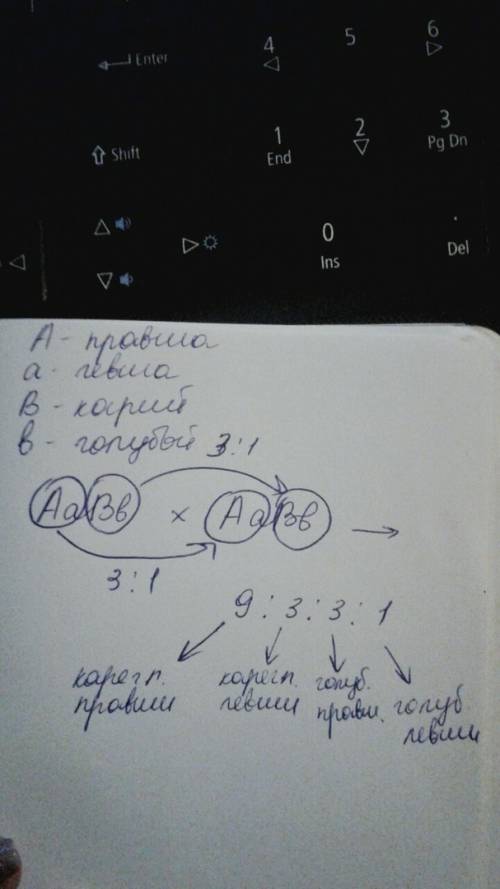 Enter 4 5 6
Shift 1 End 2 3 Pg Dn
0 Ins . Del
А - правша
а - левша
В - карий
в - голубой 3:1
АаВв × АаВв →
3:1
9 : 3 : 3 : 1
карегл. правши
карегл. левши
голуб. правш.
голуб. левши